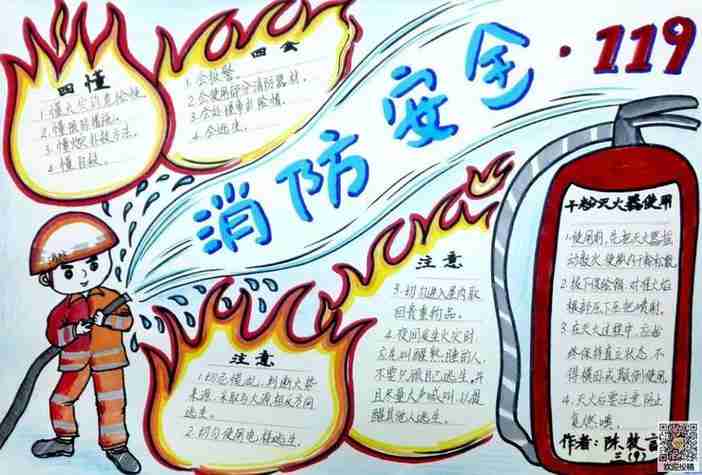 消防安全·119
四懂
1.懂火灾的危险性.
2.懂预防措施.
3.懂火灾扑救方法.
4.懂自救.
四会
1.会报警.
2.会使用部分消防器材.
3.会处理事故险情.
4.会逃生.
注意
1.切忌慌乱,判断火势
来源,采取与火源相反方向
逃生.
2.切勿使用电梯逃生.
注意
3.切勿进入屋内取
回贵重物品.
4.夜间发生火灾时,
应先叫醒熟睡的人,
不要只顾自己逃生,并
且尽量大声喊叫,以提
醒其他人逃生.
干粉灭火器使用
1.使用前,先把灭火器摇
动数次,使瓶内干粉松散.
2.拔下保险销,对准火焰
根部压下压把喷射.
3.在灭火过程中,应始
终保持直立状态,不
得横卧或颠倒使用.
4.灭火后要注意防止
复燃.
作者:陈教言
三(9)
欢迎投稿